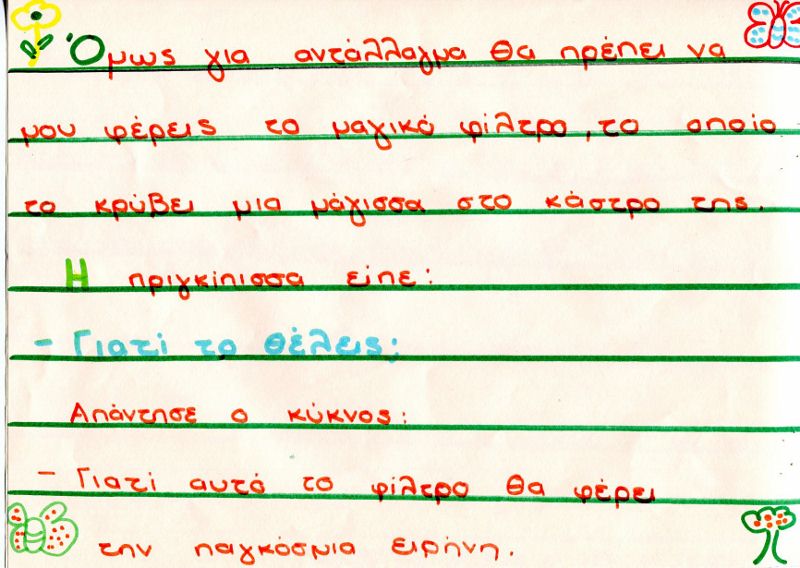 Όμως για αντάλλαγμα θα πρέπει να
μου φέρεις το μαγικό φίλτρο, το οποίο
το κρύβει μια μάγισσα στο κάστρο της.
Η πριγκίπισσα είπε:
- Γιατί το θέλεις;
Απάντησε ο κύκνος:
- Γιατί αυτό το φίλτρο θα φέρει
την παγκόσμια ειρήνη.